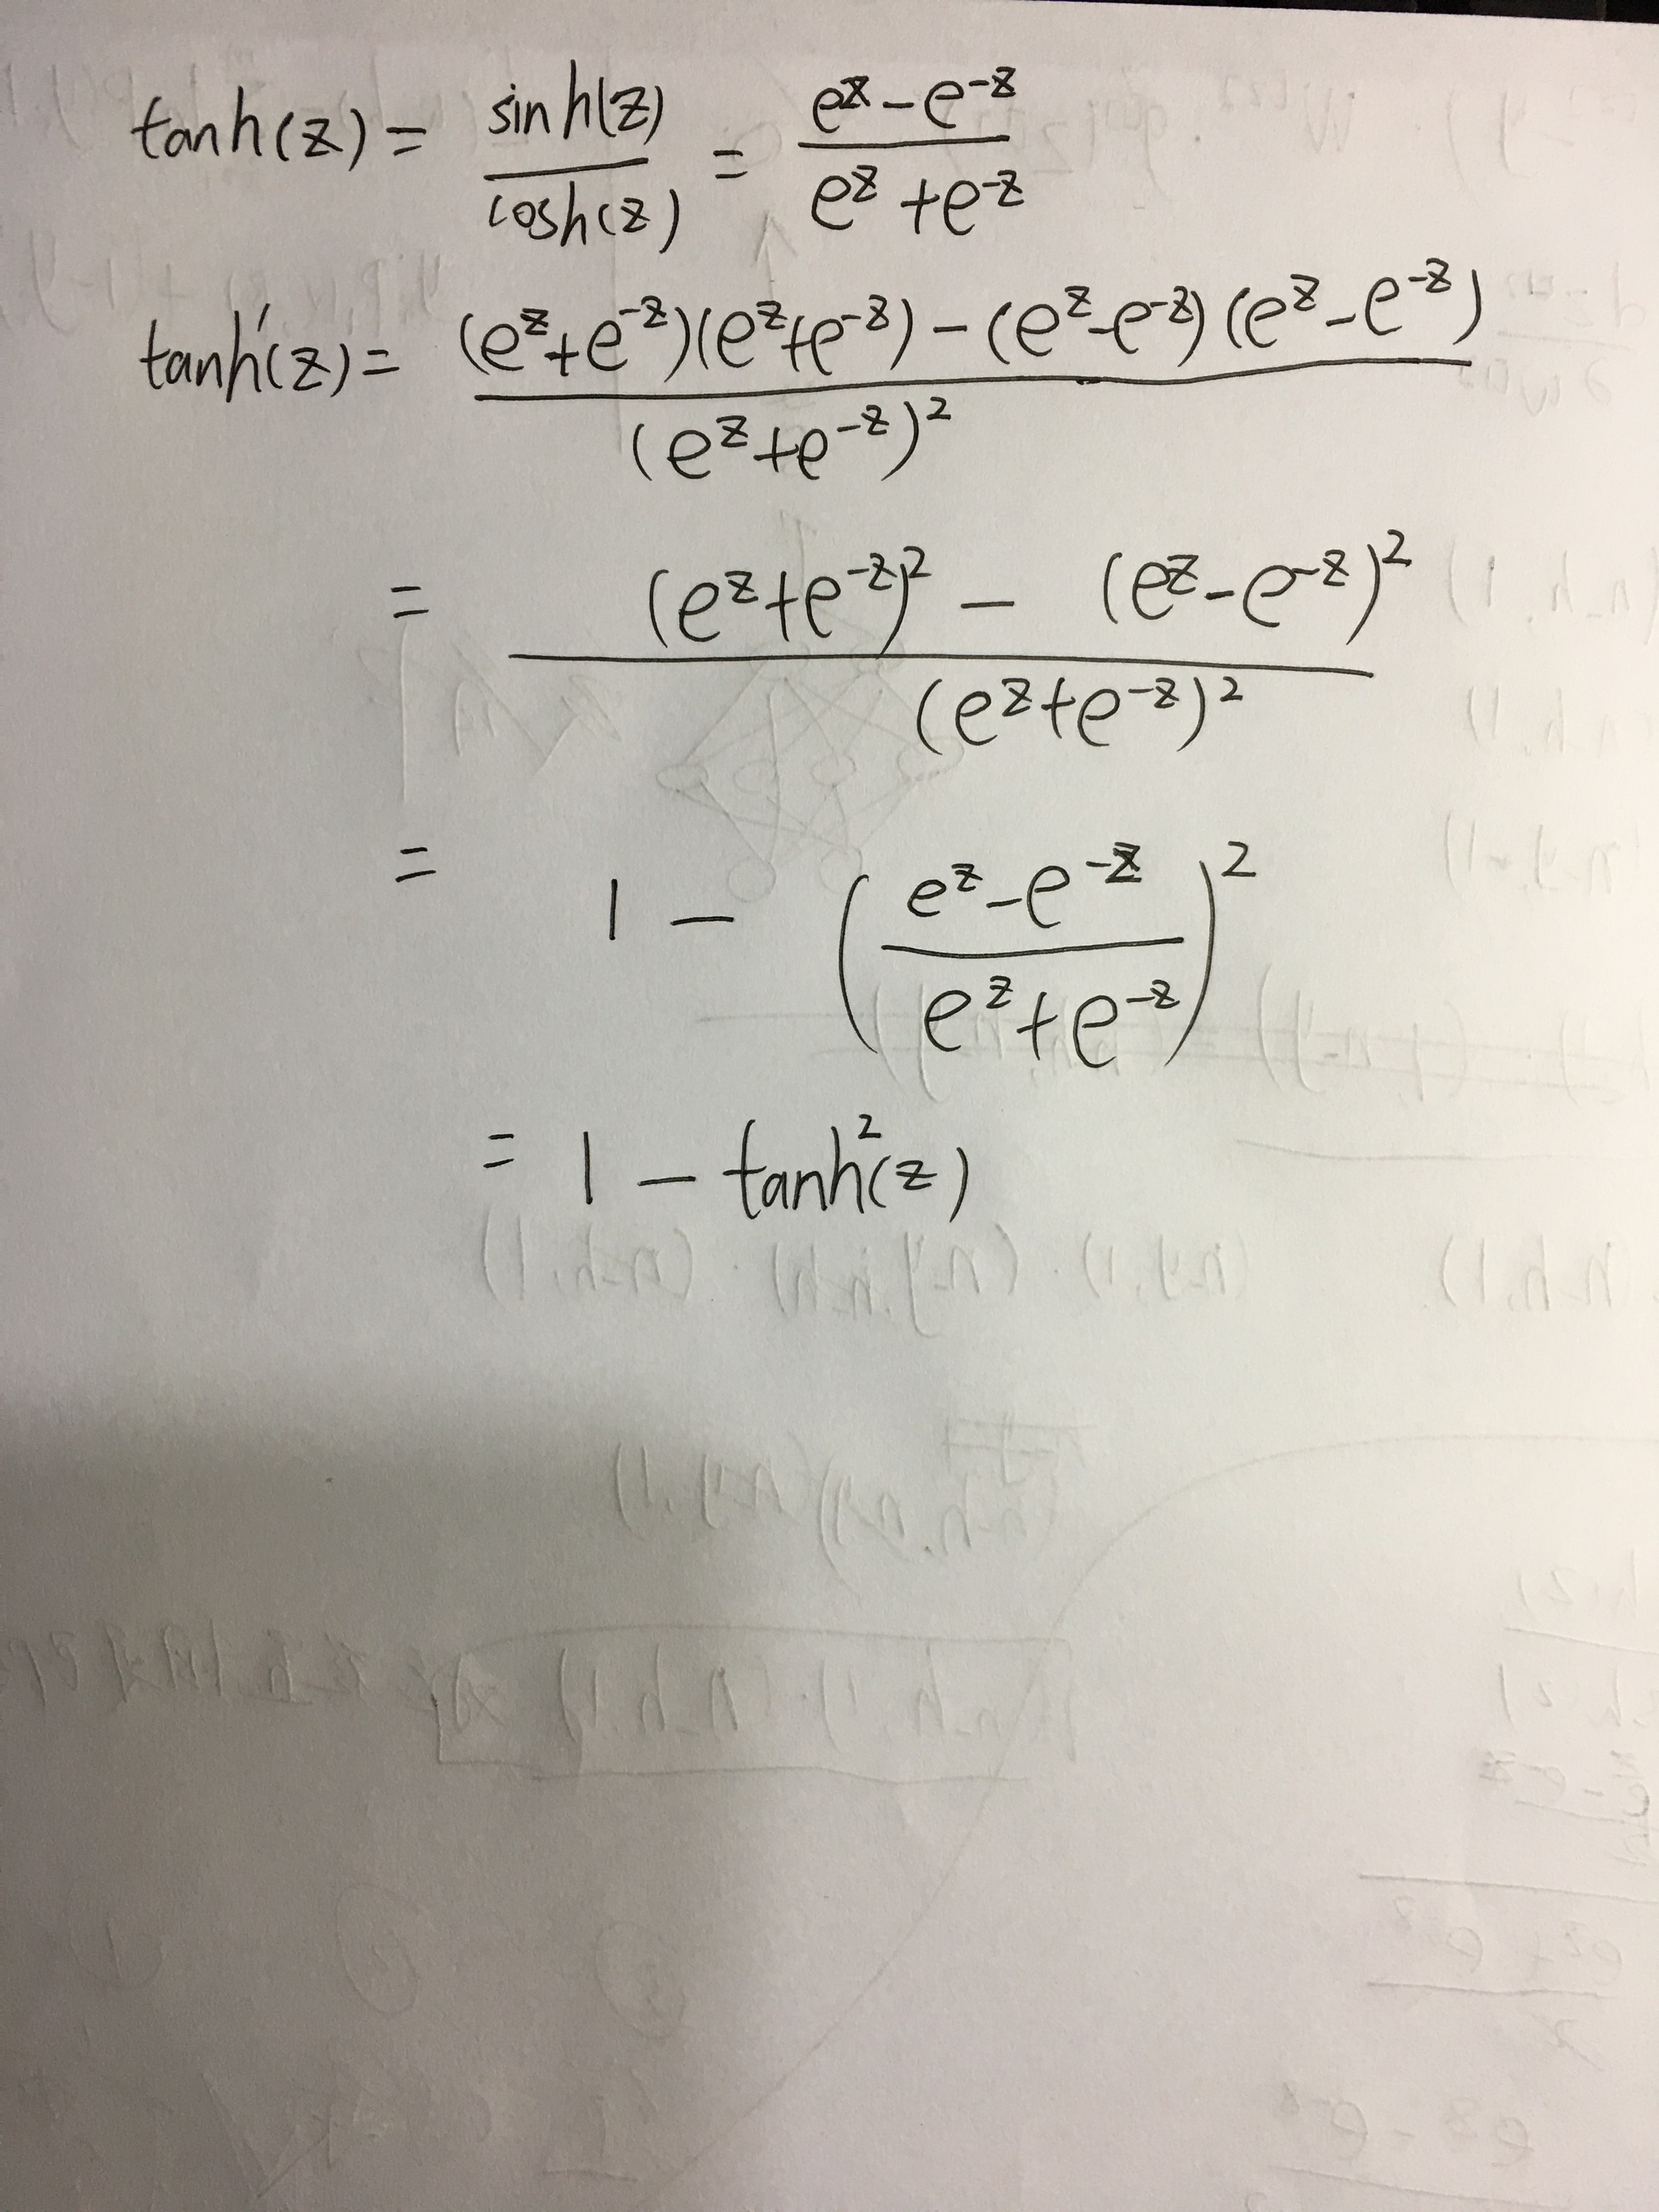 tanh(z) = sinh(z) / cosh(z) = e^z - e^-z / e^z + e^-z
tanh'(z) = (e^z + e^-z)(e^z + e^-z) - (e^z - e^-z)(e^z - e^-z) / (e^z + e^-z)^2
= (e^z + e^-z)^2 - (e^z - e^-z)^2 / (e^z + e^-z)^2
= 1 - (e^z - e^-z / e^z + e^-z)^2
= 1 - tanh^2(z)